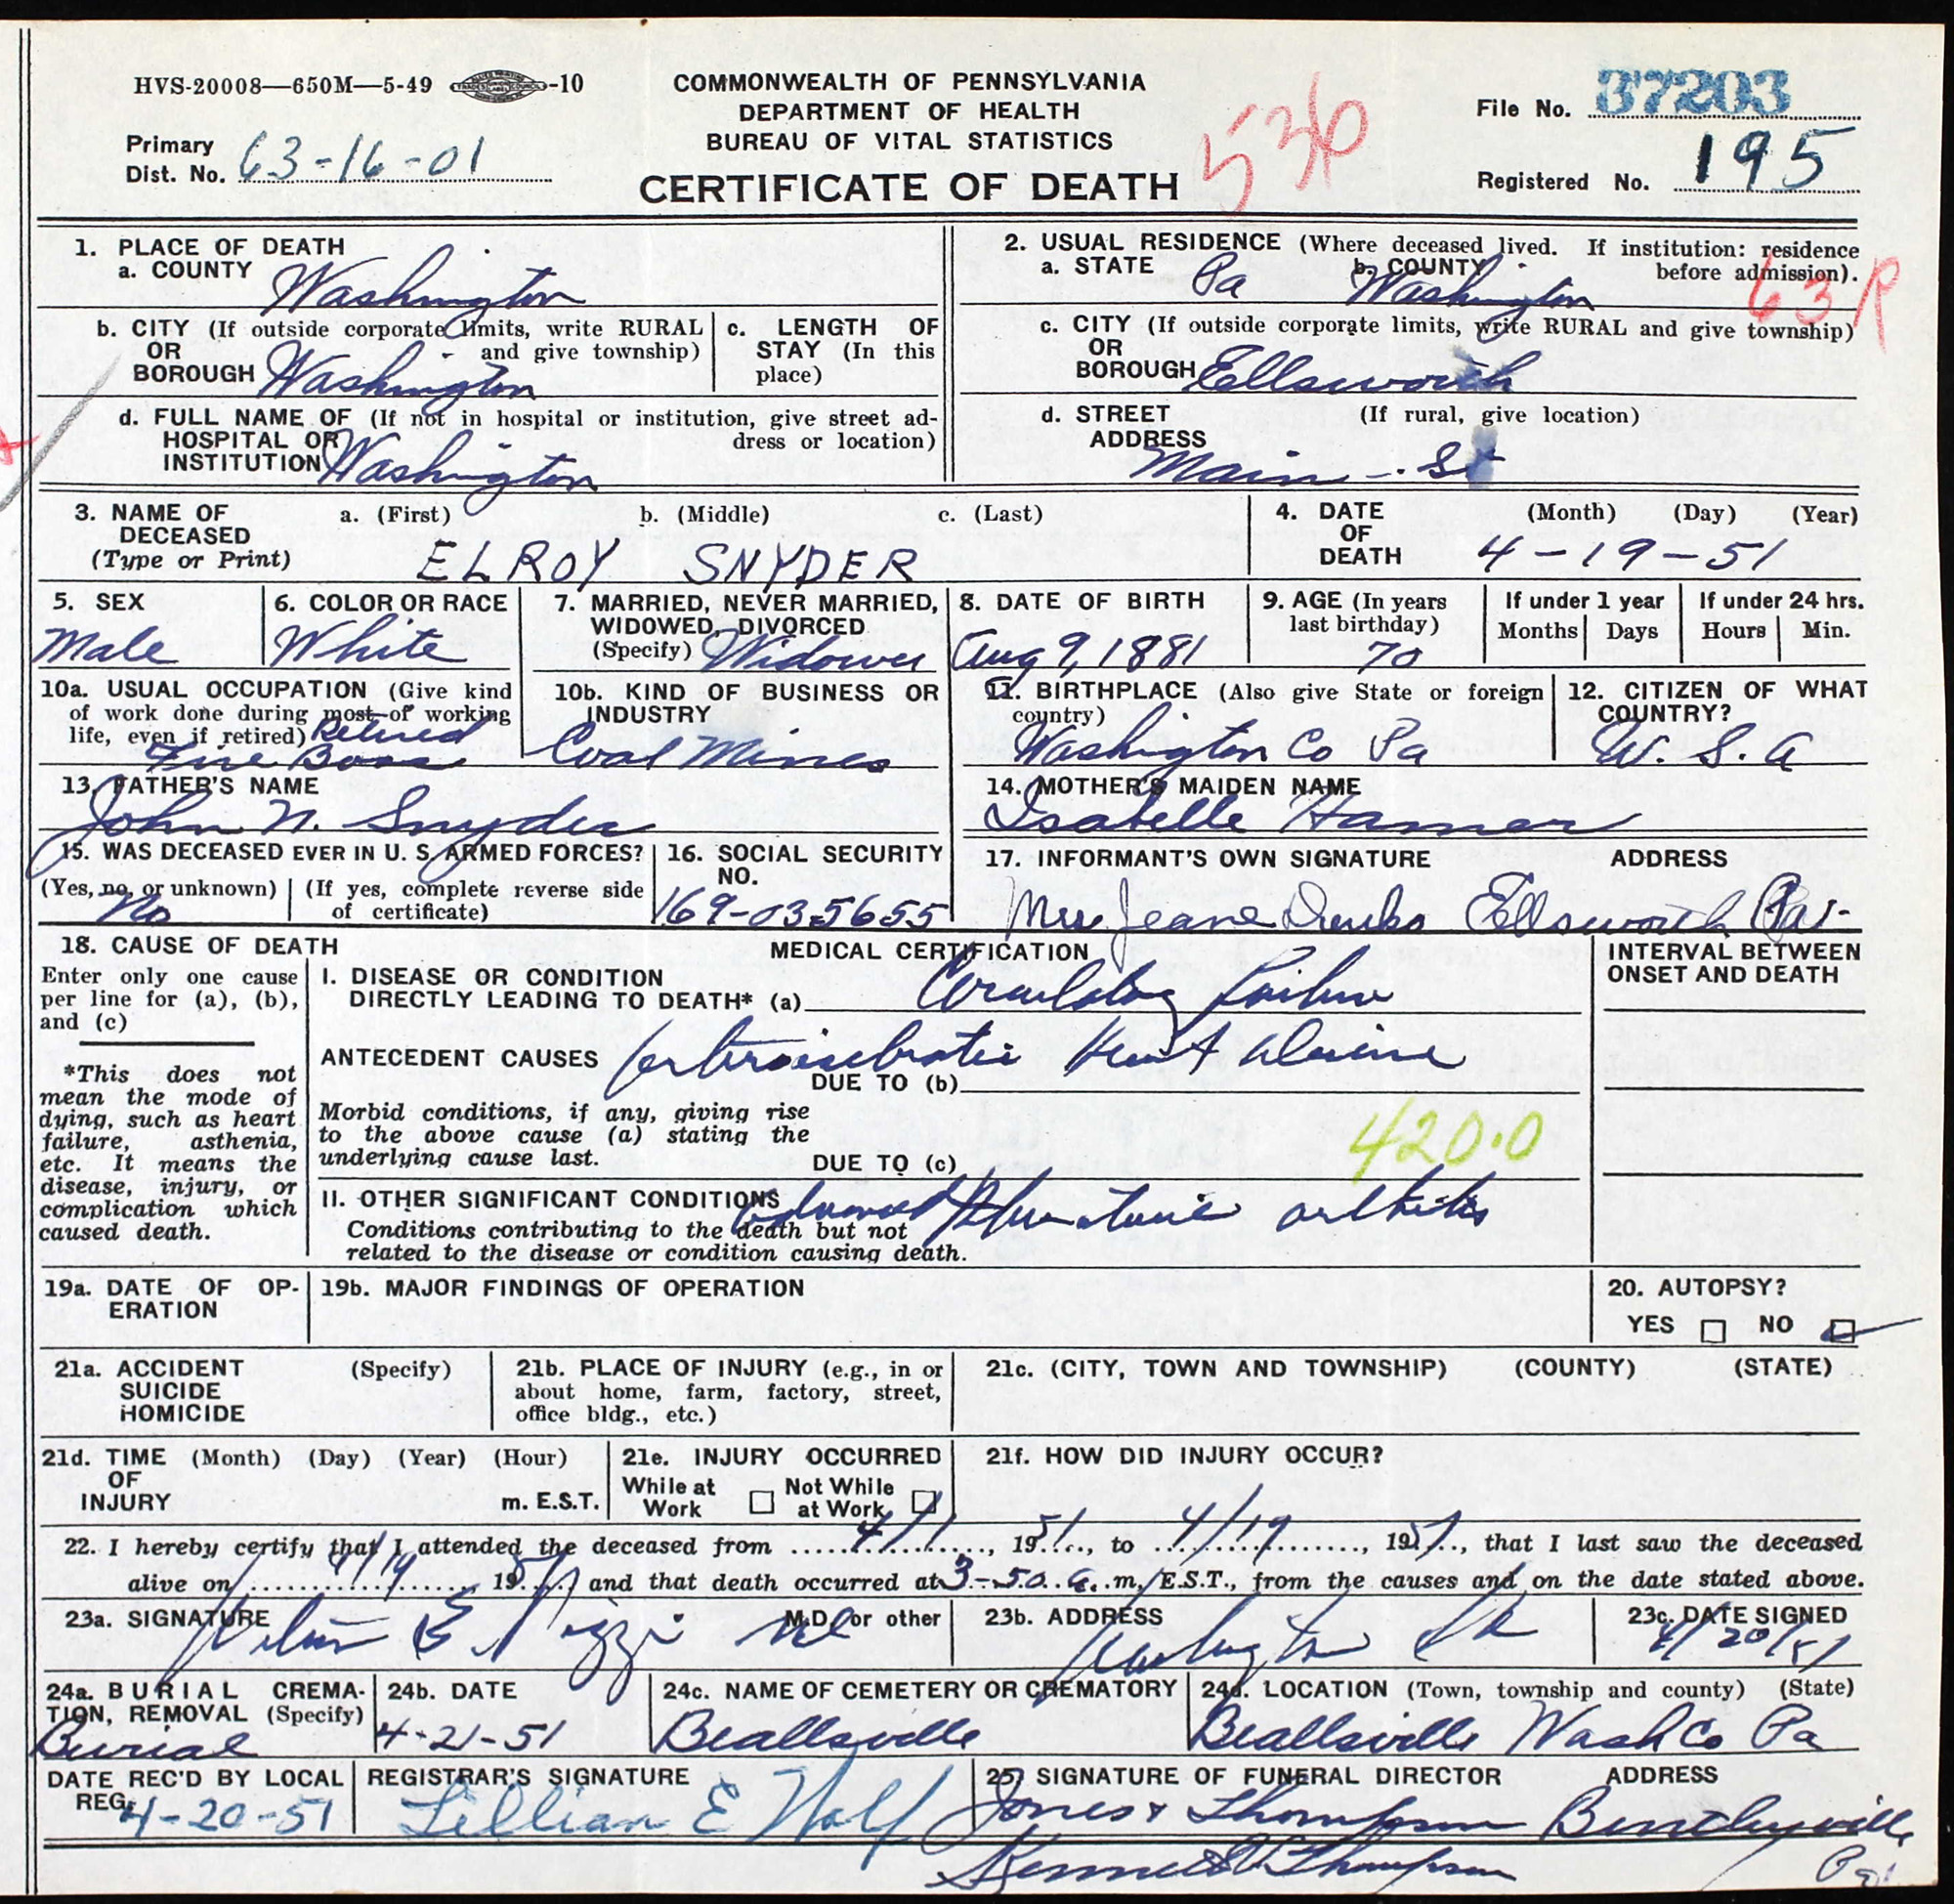 HVS-20008—650M—5-49 -10
COMMONWEALTH OF PENNSYLVANIA
DEPARTMENT OF HEALTH
BUREAU OF VITAL STATISTICS
CERTIFICATE OF DEATH
53p
File No. 37203
Primary
Dist. No. 63-16-01
Registered No. 195
1. PLACE OF DEATH
a. COUNTY Washington
2. USUAL RESIDENCE (Where deceased lived. If institution: residence
before admission).
a. STATE Pa b. COUNTY Washington
63 R
b. CITY (If outside corporate limits, write RURAL
OR - and give township)
BOROUGH Washington
c. LENGTH OF
STAY (In this
place)
c. CITY (If outside corporate limits, write RURAL and give township)
OR
BOROUGH Ellsworth
d. FULL NAME OF (If not in hospital or institution, give street ad-
HOSPITAL OR dress or location)
INSTITUTION Washington
d. STREET (If rural, give location)
ADDRESS
Main - St
3. NAME OF
DECEASED
(Type or Print)
a. (First) b. (Middle) c. (Last)
ELROY SNYDER
4. DATE
OF
DEATH
(Month) (Day) (Year)
4-19-51
5. SEX
Male
6. COLOR OR RACE
White
7. MARRIED, NEVER MARRIED,
WIDOWED, DIVORCED
(Specify) Widower
8. DATE OF BIRTH
Aug 9, 1881
9. AGE (In years
last birthday)
70
If under 1 year
Months Days
If under 24 hrs.
Hours Min.
10a. USUAL OCCUPATION (Give kind
of work done during most of working
life, even if retired) Retired
Fire Boss
10b. KIND OF BUSINESS OR
INDUSTRY
Coal Mines
11. BIRTHPLACE (Also give State or foreign
country)
Washington Co Pa
12. CITIZEN OF WHAT
COUNTRY?
U. S. A
13. FATHER'S NAME
John N. Snyder
14. MOTHER'S MAIDEN NAME
Isabelle Hamer
15. WAS DECEASED EVER IN U. S. ARMED FORCES?
(Yes, no, or unknown) (If yes, complete reverse side
of certificate)
No
16. SOCIAL SECURITY
NO.
169-03-5655
17. INFORMANT'S OWN SIGNATURE ADDRESS
Mrs Jeane Ellsworth Pa.
18. CAUSE OF DEATH
Enter only one cause
per line for (a), (b),
and (c)
*This does not
mean the mode of
dying, such as heart
failure, asthenia,
etc. It means the
disease, injury, or
complication which
caused death.
MEDICAL CERTIFICATION
I. DISEASE OR CONDITION
DIRECTLY LEADING TO DEATH* (a) Circulatory Failure
ANTECEDENT CAUSES Arteriosclerotic Heart disease
DUE TO (b)
Morbid conditions, if any, giving rise
to the above cause (a) stating the
underlying cause last.
DUE TO (c)
420.0
II. OTHER SIGNIFICANT CONDITIONS
Advanced Rheumatoid arthritis
Conditions contributing to the death but not
related to the disease or condition causing death.
INTERVAL BETWEEN
ONSET AND DEATH
19a. DATE OF OP-
ERATION
19b. MAJOR FINDINGS OF OPERATION
20. AUTOPSY?
YES NO
21a. ACCIDENT (Specify)
SUICIDE
HOMICIDE
21b. PLACE OF INJURY (e.g., in or
about home, farm, factory, street,
office bldg., etc.)
21c. (CITY, TOWN AND TOWNSHIP) (COUNTY) (STATE)
21d. TIME (Month) (Day) (Year) (Hour)
OF
INJURY m. E.S.T.
21e. INJURY OCCURRED
While at Work Not While at Work
21f. HOW DID INJURY OCCUR?
22. I hereby certify that I attended the deceased from 4/1, 1951, to 4/19, 1951, that I last saw the deceased
alive on 4/19, 1951, and that death occurred at 3-50 a. m. E.S.T., from the causes and on the date stated above.
23a. SIGNATURE M.D. or other
23b. ADDRESS
Washington Pa
23c. DATE SIGNED
4/20/51
24a. BURIAL CREMA-
TION, REMOVAL (Specify)
Burial
24b. DATE
4-21-51
24c. NAME OF CEMETERY OR CREMATORY
Beallsville
24d. LOCATION (Town, township and county) (State)
Beallsville Wash Co Pa
DATE REC'D BY LOCAL
REG.
4-20-51
REGISTRAR'S SIGNATURE
Lillian E Wolf
25. SIGNATURE OF FUNERAL DIRECTOR ADDRESS
Jones & Thompson Bentleyville
Kenneth Thompson Pa.